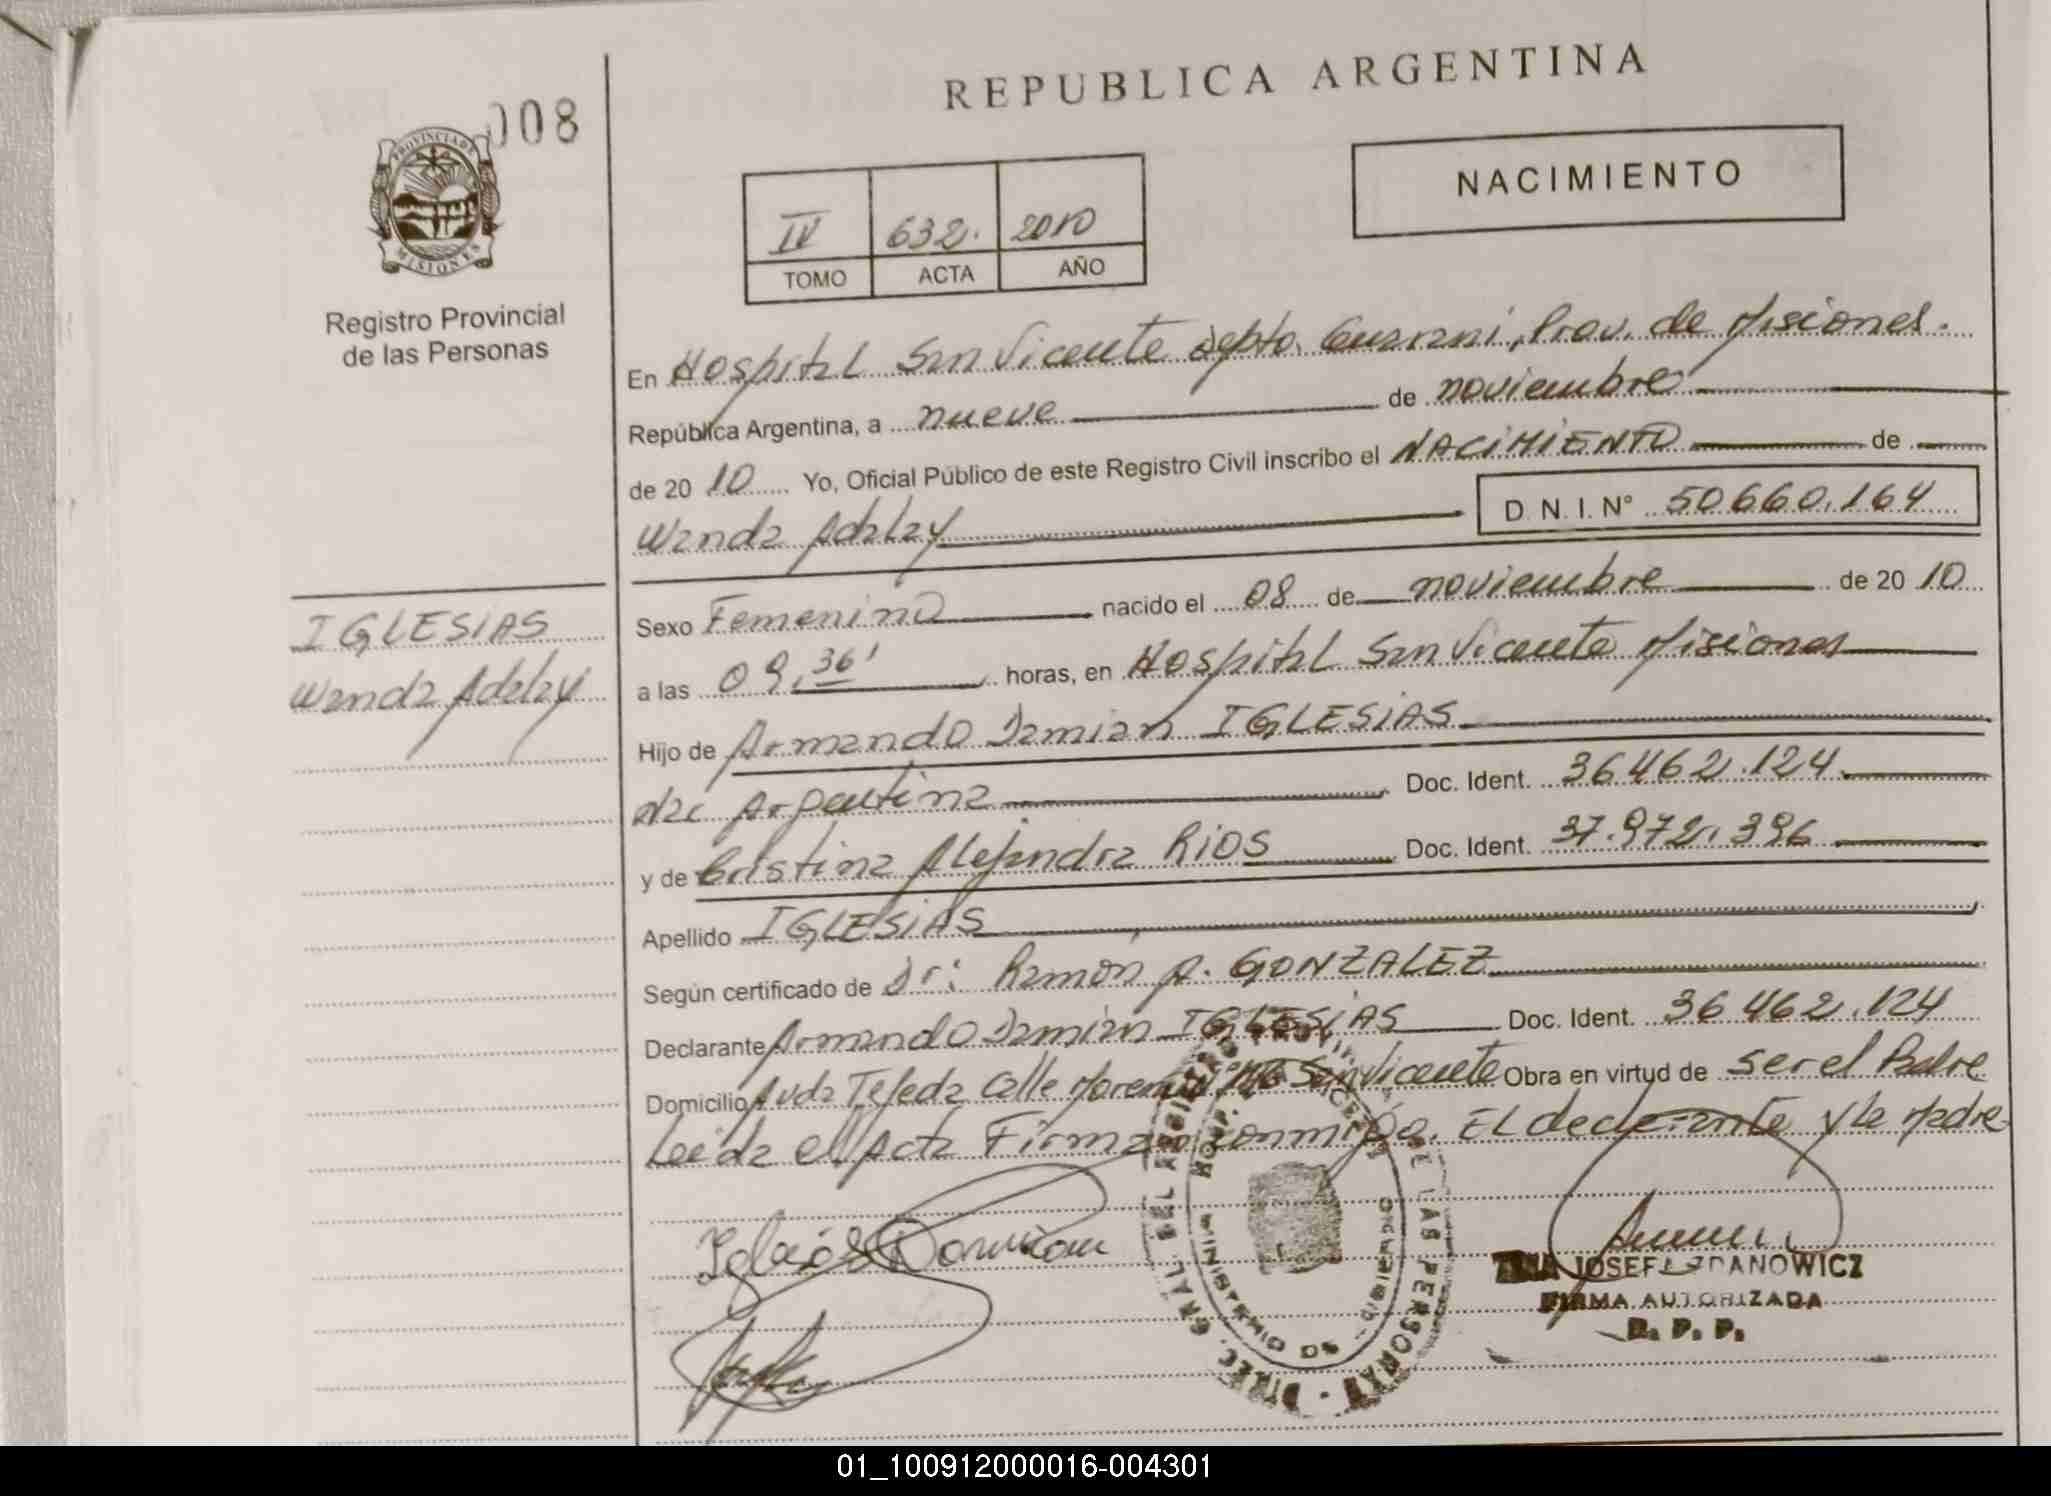 REPUBLICA ARGENTINA
008
PROVINCIA DE
MISIONES
Registro Provincial
de las Personas
NACIMIENTO
IV 632. 2010
TOMO ACTA AÑO
En Hospital San Vicente Depto. Guarani, Prov. de Misiones.
República Argentina, a nueve de noviembre
de 20 10 Yo, Oficial Público de este Registro Civil inscribo el NACIMIENTO de
Wanda Adalay
D.N.I. N° 50660.164
IGLESIAS
Wanda Adalay
Sexo Femenino nacido el 08 de noviembre de 20 10
a las 09.36' horas, en Hospital San Vicente Misiones
Hijo de Armando Damian IGLESIAS
nac Argentina Doc. Ident. 36462.124
y de Cristina Alejandra RIOS Doc. Ident. 37.972.396
Apellido IGLESIAS
Según certificado de Dr: Ramón A. GONZALEZ
Declarante Armando Damian IGLESIAS Doc. Ident. 36462.124
Domicilio Avda Tejeda Calle San Vicente Obra en virtud de ser el Padre
Leida el Acta Firman conmigo. El declarante y la Madre
Iglesias Damian
JOSEFA ZDANOWICZ
FIRMA AUTORIZADA
R. P. P.
DE LAS PERSONAS
MINISTERIO DE
01_100912000016-004301